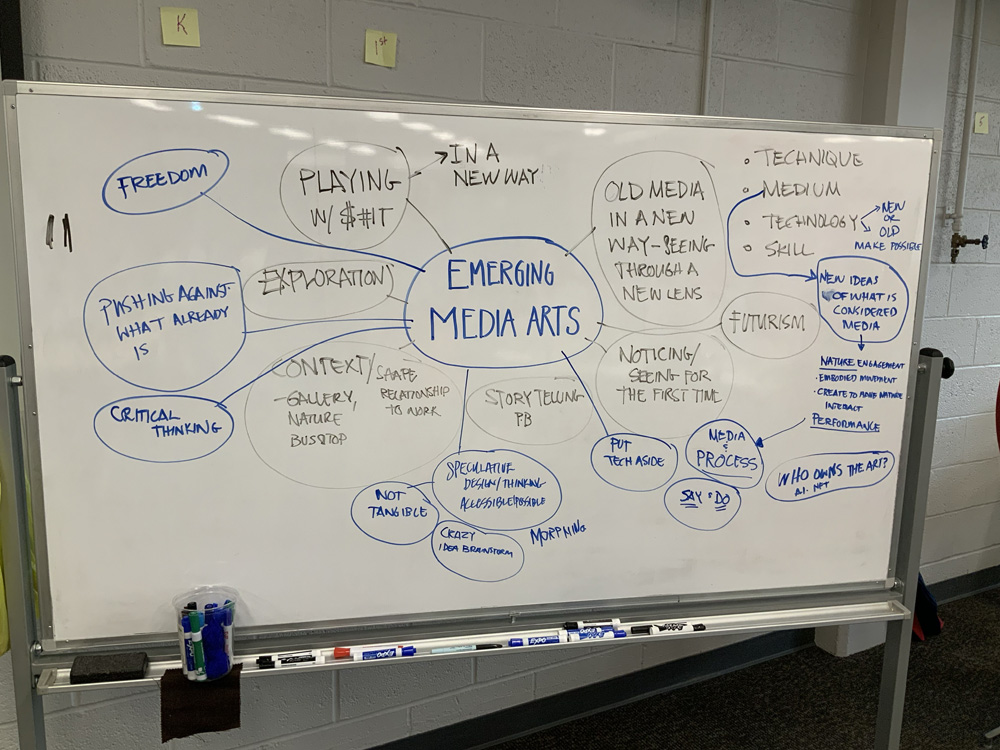 K
1st
FREEDOM
PLAYING
W/ $#IT
IN A
NEW WAY
OLD MEDIA
IN A NEW
WAY-SEEING
THROUGH A
NEW LENS
• TECHNIQUE
• MEDIUM
• TECHNOLOGY
• SKILL
NEW
OR
OLD
MAKE POSSIBLE
EXPLORATION
EMERGING
MEDIA ARTS
PUSHING AGAINST
WHAT ALREADY
IS
FUTURISM
NEW IDEAS
OF WHAT IS
CONSIDERED
MEDIA
CONTEXT/
-GALLERY,
NATURE
BUSSTOP
RELATIONSHIP
TO WORK
NOTICING/
SEEING FOR
THE FIRST TIME
NATURE ENGAGEMENT
• EMBODIED MOVEMENT
• CREATE TO MAKE NATURE
INTERACT
PERFORMANCE
CRITICAL
THINKING
STORYTELLING
PB
PUT
TECH ASIDE
MEDIA
&
PROCESS
SAY & DO
WHO OWNS THE ART?
A.I. NFT
SPECULATIVE
DESIGN/THINKING
ACCESSIBLE/POSSIBLE
NOT
TANGIBLE
CRAZY
IDEA BRAINSTORM
MORPHING
EXPO